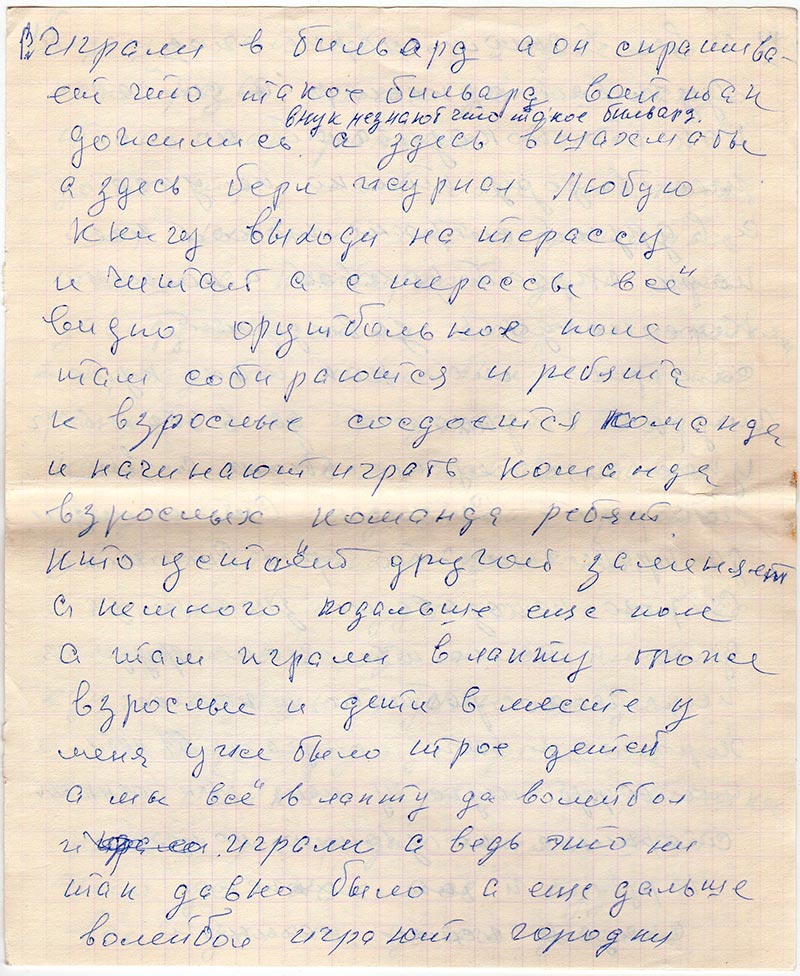 Играли в бильярд а он спрашива-
ет что такое бильярд вот так
внук незнают что такое бильярд.
дожились а здесь в шахматы
а здесь бери журнал любую
книгу выходи на терассу
и читай а с терассы всё
видно футбольное поле
там собираются и ребята
и взрослые создаются команда
и начинают играть команда
взрослых команда ребят
кто устаёт другой заменяет
а немного подальше еще поле
а там играли в лапту тоже
взрослые и дети вместе у
меня уже было трое детей
а мы всё в лапту да волейбол
и играли а ведь это ни
так давно было а еще дальше
волейбол играют городки